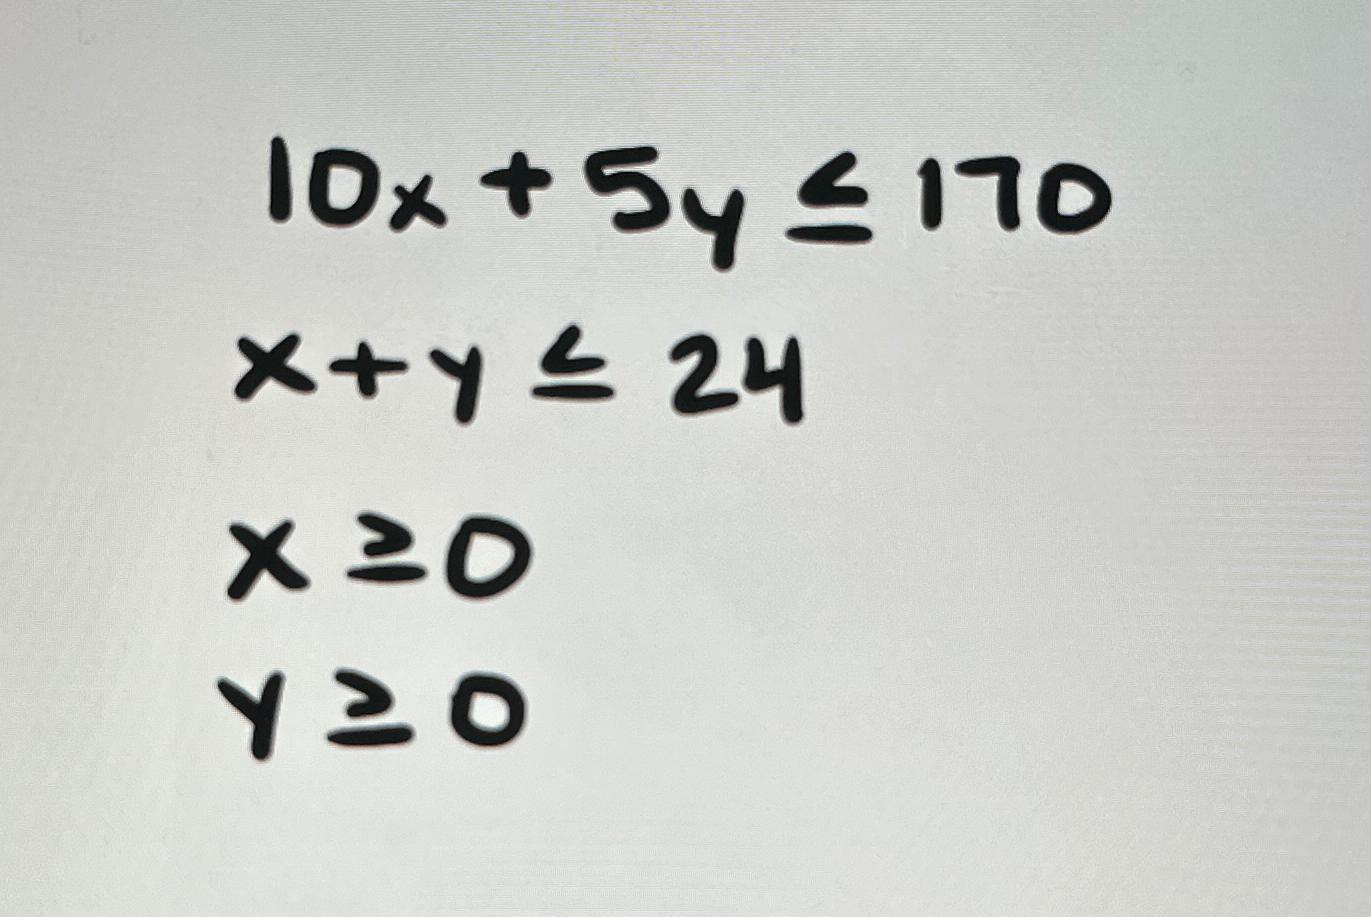 10x + 5y ≤ 170
x + y ≤ 24
x ≥ 0
y ≥ 0